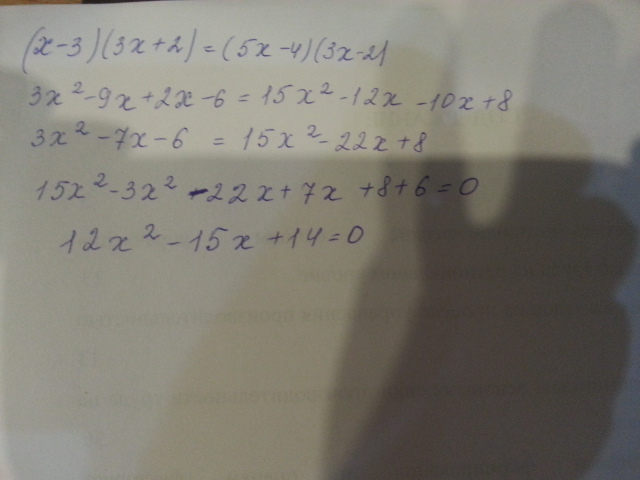 (x-3)(3x+2)=(5x-4)(3x-2)
3x²-9x+2x-6=15x²-12x-10x+8
3x²-7x-6=15x²-22x+8
15x²-3x²-22x+7x+8+6=0
12x²-15x+14=0